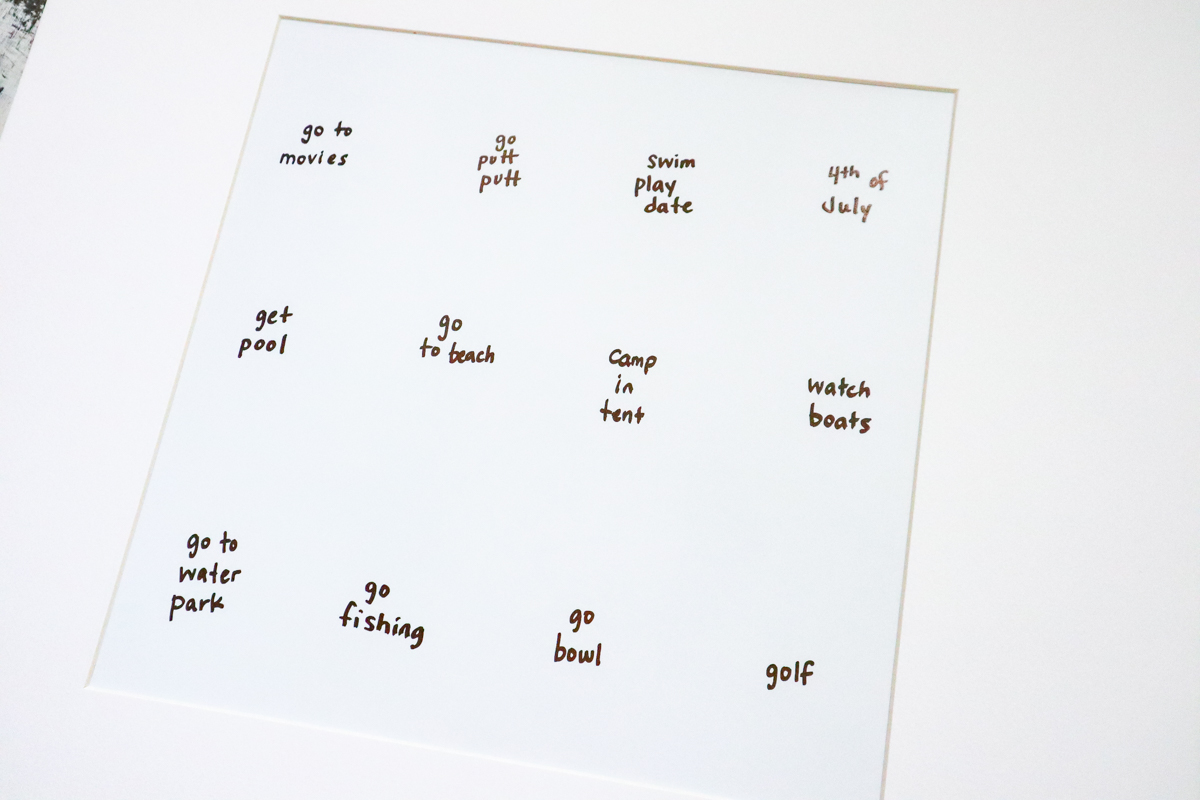 go to
movies
go
putt
putt
swim
play
date
4th of
July
get
pool
go
to beach
Camp
in
tent
watch
boats
go to
water
park
go
fishing
go
bowl
golf